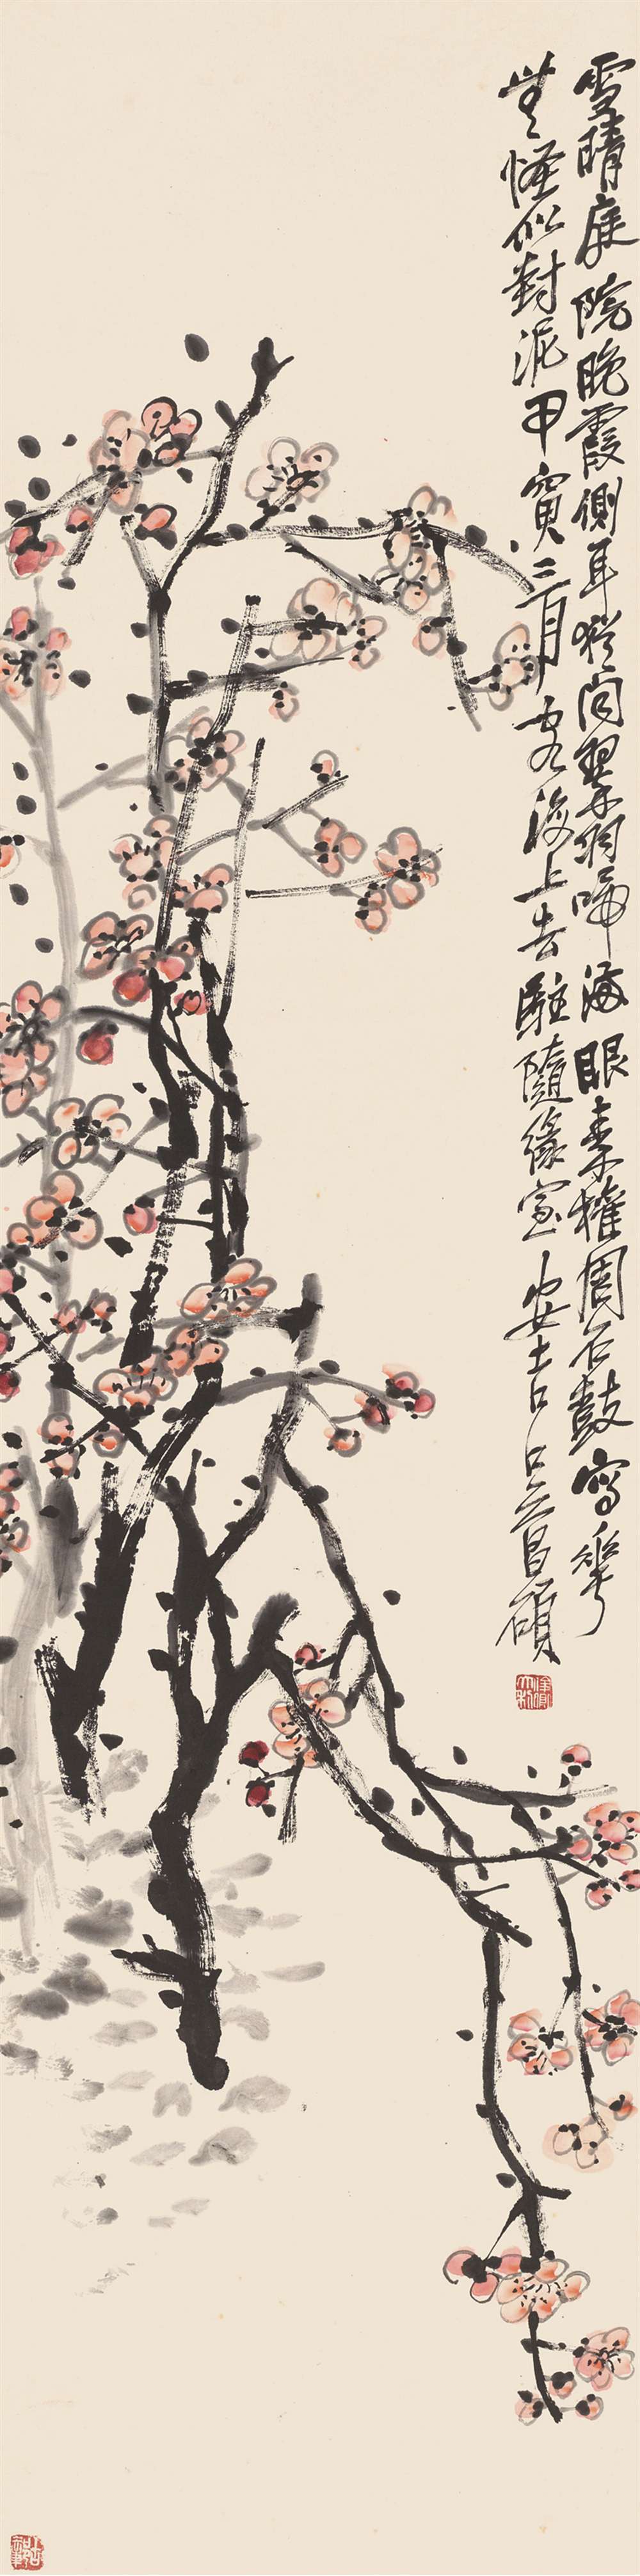 雪晴庭院晚霞側耳猶聞翠羽啼海眼摧周石鼓寫華
無怪似封泥甲寅三月客海上去駐隨緣室安吉吳昌碩